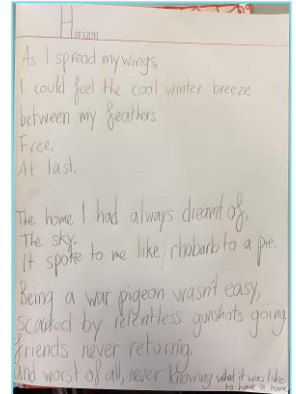 Horizon
As I spread my wings,
I could feel the cool winter breeze
between my feathers.
Free.
At last.
The home I had always dreamt of,
The sky.
It spoke to me like rhubarb to a pie.
Being a war pigeon wasn't easy,
scarred by relentless gunshots going
friends never returnig,
and worst of all, never knowing what it was like
to have a home